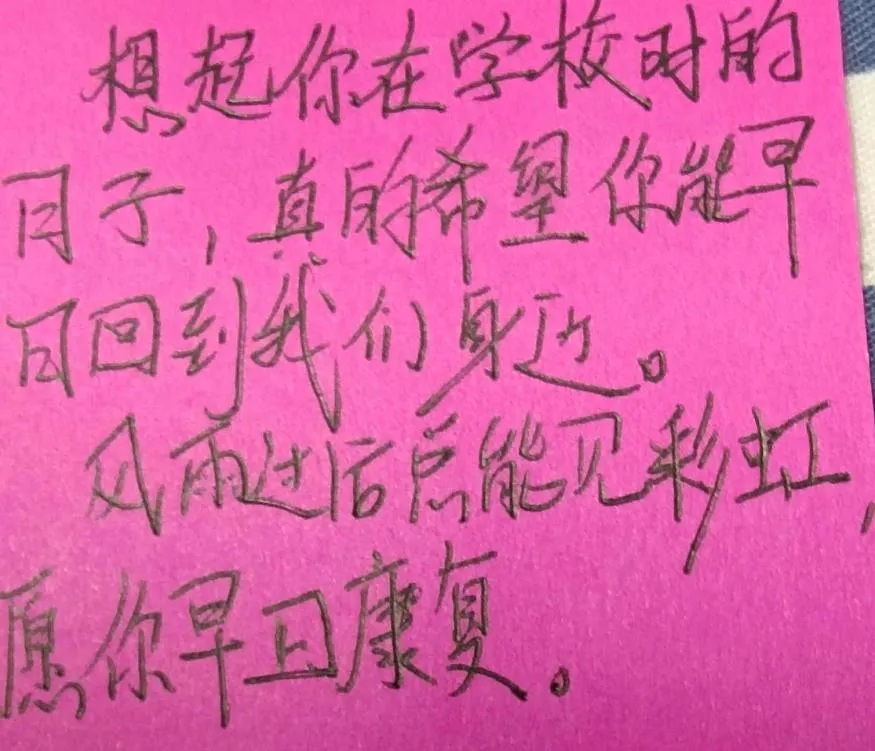 想起你在学校时的
日子，真的希望你能早
日回到我们身边。
风雨过后总能见彩虹，
愿你早日康复。